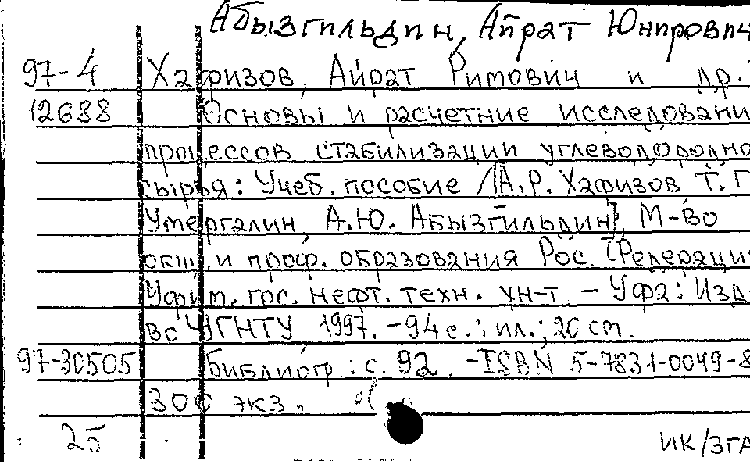 Абызгильдин, Айрат Юнирович
97-4 Хафизов, Айрат Римович и др.
12638 Основы и расчетние исследовани
процессов стабилизации углеводородно
сырья: Учеб. пособие /[А.Р. Хафизов Т.Г
Умергалин, А.Ю. Абызгильдин]; М-во
общ. и проф. образования Рос. Федерации
Уфим. гос. нефт. техн. ун-т. - Уфа: Изд-
во УГНТУ 1997. - 94 с.: ил.; 20 см.
97-30505 Библиогр: с. 92. - ISBN 5-7831-0049-8
300 экз.
25 ИК/ЗГА